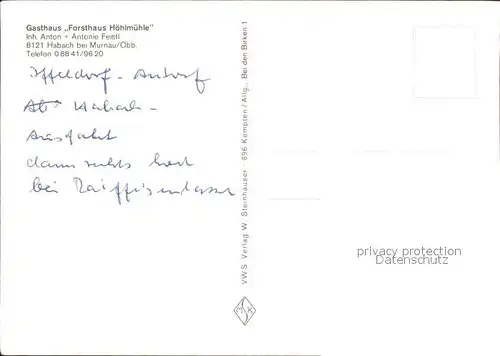 Gasthaus „Forsthaus Höhlmühle"
Inh. Anton + Antonie Ferstl
8121 Habach bei Murnau/Obb.
Telefon 0 88 41/96 20
Iffeldorf - Antdorf
Habach -
Ausfahrt
dann rechts hoch
bei Raiffeisenkasse
VWS Verlag W. Steinhauser · 896 Kempten/Allg., Bei den Birken 1
privacy protection
Datenschutz